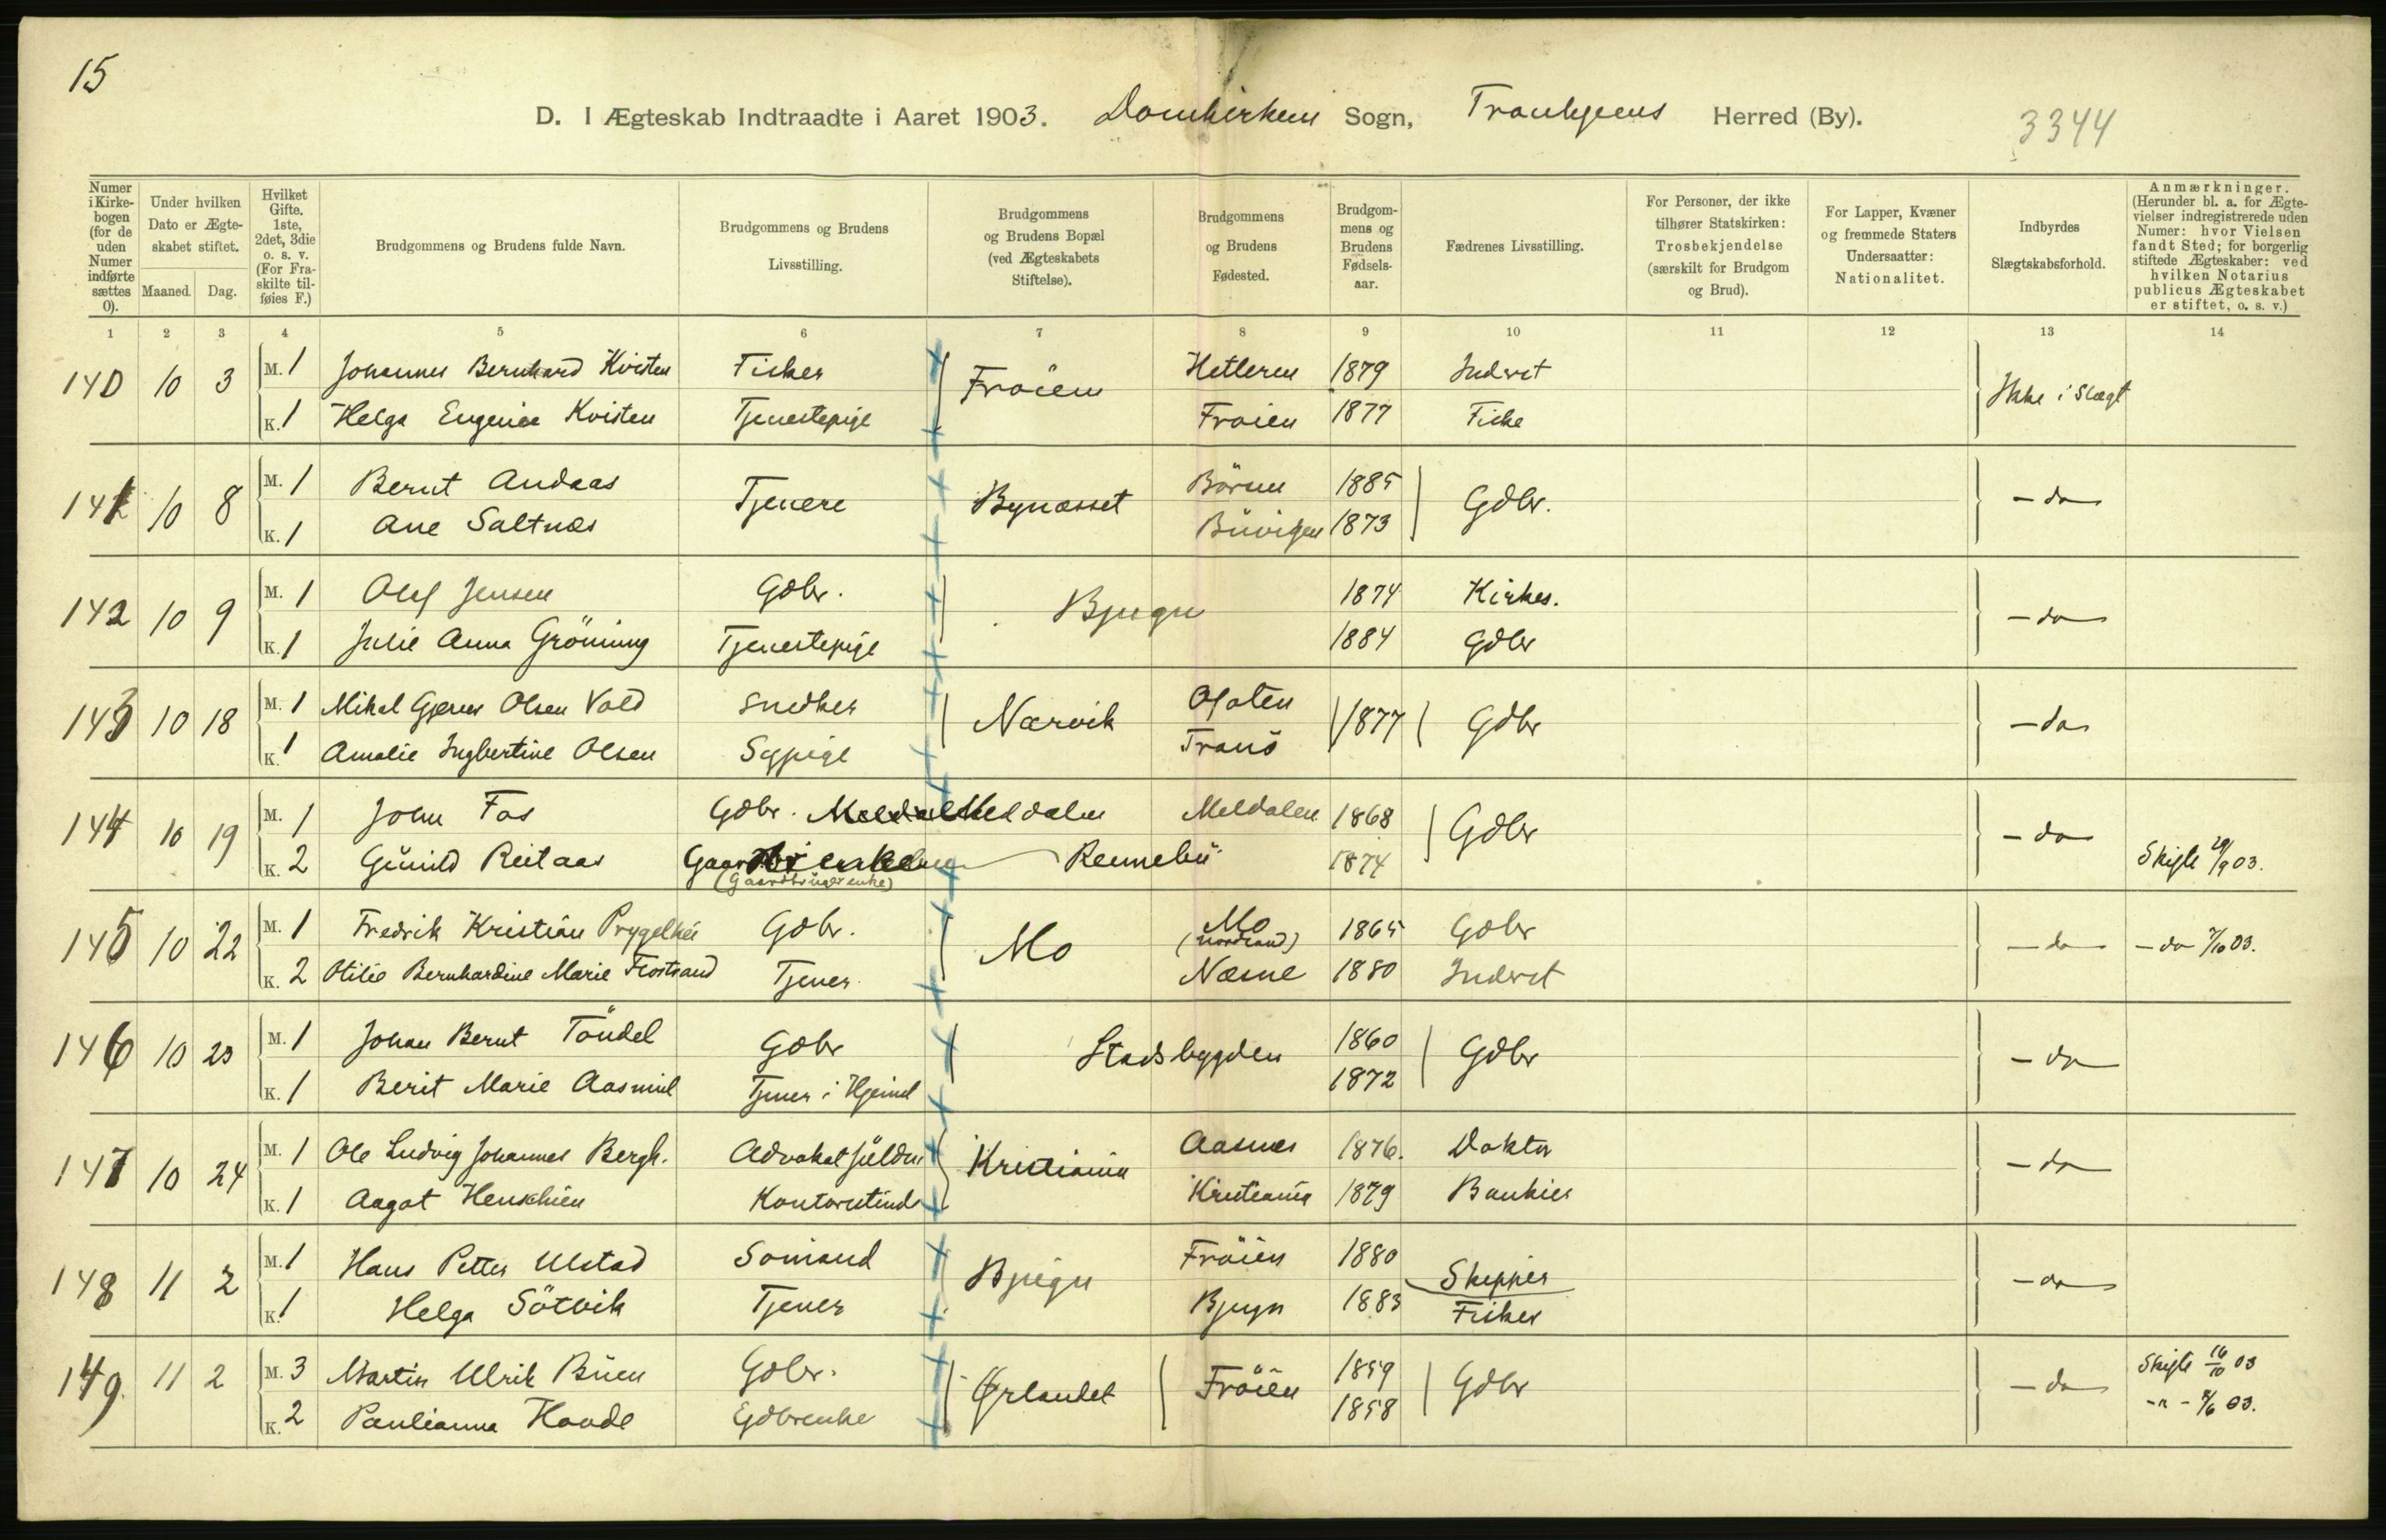 15
D. I Ægteskab Indtraadte i Aaret 1903. Domkirkens Sogn, Tronhjems Herred (By). 3344
Numer i Kirkebogen (for de uden Numer indførte sættes 0).
Under hvilken Dato er Ægteskabet stiftet.
Maaned. Dag.
Hvilket Gifte. 1ste, 2det, 3die o. s. v. (For Fraskilte tilføies F.)
Brudgommens og Brudens fulde Navn.
Brudgommens og Brudens Livsstilling.
Brudgommens og Brudens Bopæl (ved Ægteskabets Stiftelse).
Brudgommens og Brudens Fødested.
Brudgommens og Brudens Fødselsaar.
Fædrenes Livsstilling.
For Personer, der ikke tilhører Statskirken: Trosbekjendelse (særskilt for Brudgom og Brud).
For Lapper, Kvæner og fremmede Staters Undersaatter: Nationalitet.
Indbyrdes Slægtskabsforhold.
Anmærkninger. (Herunder bl. a. for Ægtevielser indregistrerede uden Numer: hvor Vielsen fandt Sted; for borgerlig stiftede Ægteskaber: ved hvilken Notarius publicus Ægteskabet er stiftet, o. s. v.)
1 2 3 4 5 6 7 8 9 10 11 12 13 14
140 10 3 M. 1 Johannes Bernhard Kvisten Fisker Froien 1879 Inderst Ikke i Slægt
K. 1 Helga Eugenie Kvisten Tjenestepige Froien 1877 Fiske
141 10 8 M. 1 Bernt Andaas Tjenere Bynæsset Börsen 1885 Gdbr. - do
K. 1 Ane Saltnæs Buvigen 1873
142 10 9 M. 1 Olaf Jensen Gdbr. Bjugn 1874 Kirkes. - do
K. 1 Julie Anna Gröning Tjenestepige 1884 Gdbr
143 10 18 M. 1 Mikal Olsen Vold Snedker Narvik Ofoten 1877 Gdbr - do
K. 1 Amalie Ingbertine Olsen Sypige Tranö
144 10 19 M. 1 John Fos Gdbr. Meldalen Meldalen 1868 Gdbr - do
K. 2 Gunild Reitaas (Gaardbrugerenke) Rennebu 1874 Skifte 29/9 03.
145 10 22 M. 1 Fredrik Kristian Gdbr. Mo Mo (Nordland) 1865 Gdbr - do - do 7/10 03.
K. 2 Otilie Bernhardine Marie Flostrand Tjener Næsne 1880 Inderst
146 10 23 M. 1 Johan Bernt Töndel Gdbr Stadsbygden 1860 Gdbr - do
K. 1 Berit Marie Aasmul Tjener i Hjemmet 1872
147 10 24 M. 1 Ole Ludvig Johannes Bergh. Advokatfuldm Kristiania Aasnes 1876. Doktor - do
K. 1 Aagot Henschien Kontoristinde Kristiania 1879 Bankier
148 11 2 M. 1 Hans Petter Ulstad Sömand Bjugn Fröien 1880 Skipper - do
K. 1 Helga Sötvik Tjener Bjugn 1883 Fisker
149. 11 2 M. 3 Martin Ulrik Buen Gdbr. Ørlandet Fröien 1859 Gdbr - do Skifte 16/10 03
K. 2 Paulianna Hovde Gdbrenke 1858 - " - /6 03.